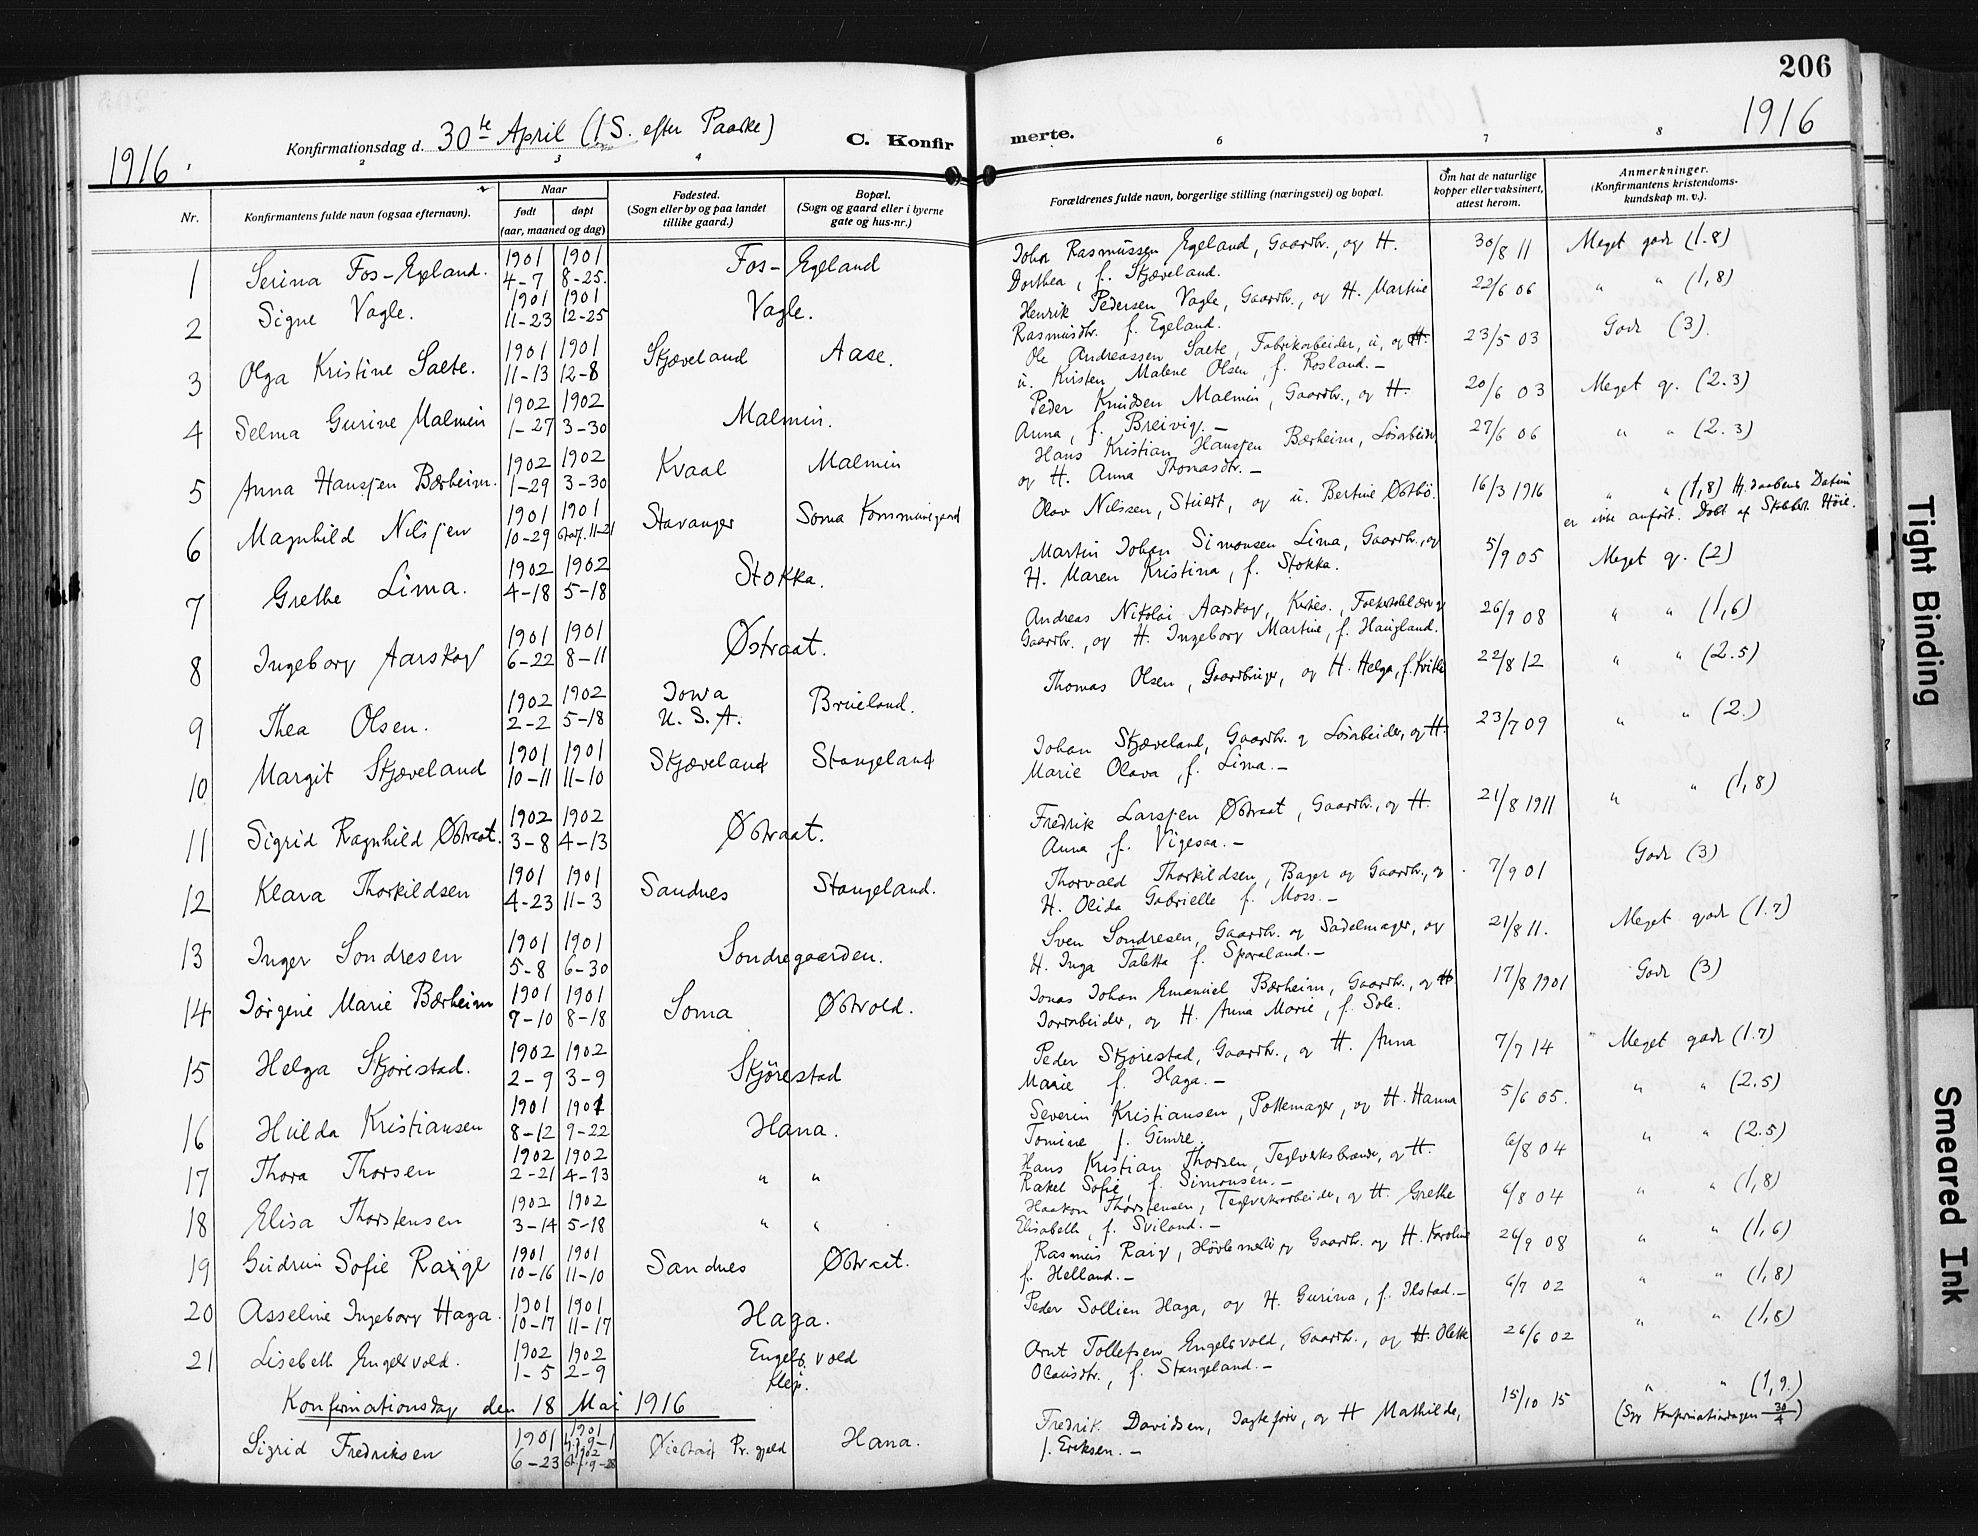 206
1916
1916.
Konfirmationsdag d. 30te April (1 S. efter Paaske)
C. Konfirmerte.
2 3 4 6 7 8
Nr.
Konfirmantens fulde navn (ogsaa efternavn).
Naar
født
døpt
(aar, maaned og dag)
Fødested.
(Sogn eller by og paa landet
tillike gaard.)
Bopæl.
(Sogn og gaard eller i byerne
gate og hus-nr.)
Forældrenes fulde navn, borgerlige stilling (næringsvei) og bopæl.
Om hat de naturlige
kopper eller vaksinert,
attest herom.
Anmerkninger.
(Konfirmantens kristendoms-
kundskap m. v.).
1 Serina Fos-Egeland. 1901 4-7 1901 8-25. Fos-Egeland Johan Rasmussen Egeland, Gaardbr., og H. 30/8 11 Meget godt (1.8)
Dorthea, f. Skjæveland.
2 Signe Vagle. 1901 11-23 1901 12-25 Vagle. Henrik Pedersen Vagle, Gaardbr., og H. Martine 22/6 06 " " (1,8)
Rasmusdtr. f. Egeland.
3 Olga Kristine Salte. 1901 11-13 1901 12-8 Skjæveland Aase. Ole Andreassen Salte, Fabrikarbeider, u, og 23/5 03 Godt (3).
u. Kirsten Malene Olsen f. Rosland.-
4 Selma Gurine Malmin 1902 1-27 1902 3-30 Malmin. Peder Knudsen Malmin, Gaardbr., og H. 20/6 03 Meget g. (2.3)
Anna, f. Breivig.-
5 Anna Hanssen Bærheim. 1902 1-29 1902 3-30 Kvaal Malmin Hans Kristian Hanssen Bærheim, Løsarbeider 27/6 06 " " (2.3)
og H. Anna Thomasdtr.-
6 Magnhild Nilssen 1901 10-29 1901 11-21 Stavanger Soma Kommunegaard Olav Nilssen, Stuert, og u. Bertine Østbø. 16/3 1916 " " (1,8) Hj.daabens Datum
er ikke anført. Døbt af Høie.
7 Grethe Lima. 1902 4-18 1902 5-18 Stokka. Martin Johan Simonsen Lima, Gaardbr., og 5/9 05 Meget g. (2)
H. Maren Kristina, f. Stokka.
8 Ingeborg Aarskog 1901 6-22 1901 8-11 Østraat. Andreas Nikolai Aarskog, Kirkes., Folkeskolelærer og 26/9 08 " " (1,6)
Gaardbr., og H. Ingeborg Martine, f. Haugland.
9 Thea Olsen. 1902 2-2 1902 5-18 Iowa U.S.A. Brueland. Thomas Olsen, Gaardbruger, og H. Helga, f. Kvitle 22/8 12 " " (2.5)
10 Margit Skjæveland 1901 10-11 1901 11-10 Skjæveland Stangeland Johan Skjæveland, Gaardbr. og Løsarbeider, og H. 23/7 09 " " (2.)
Marie Olava, f. Lima.-
11 Sigrid Ragnhild Østraat. 1902 3-8 1902 4-13 Østraat. Fredrik Larssen Østraat, Gaardbr., og H. 21/8 1911 " " (1,8)
Anna, f. Vigesaa.-
12 Klara Thorkildsen 1901 4-23 1901 11-3 Sandnes Stangeland. Thorvald Thorkildsen, Bager og Gaardbr., og 7/9 01 Godt (3)
H. Olida Gabrielle f. Moss.-
13 Inger Sondresen 1901 5-8 1901 6-30 Sondregaarden. Sven Sondresen, Gaardbr. og Sadelmager, og 21/8 11. Meget godt (1.7)
H. Inga Taletta f. Sporaland.-
14 Jørgine Marie Bærheim 1901 7-10 1901 8-18 Soma Østvold. Jonas Johan Emanuel Bærheim, Gaardbr., og 17/8 1901 Godt (3)
Jernarbeider, og H. Anna Marie, f. Sole.
15 Helga Skjørestad. 1902 2-9 1902 3-9 Skjørestad Peder Skjørestad, Gaardbr., og H. Anna 7/7 14 Meget godt (1.7)
Marie f. Haga.-
16 Hilda Kristiansen 1901 8-12 1901 9-22 Hana. Severin Kristiansen, Pottemager, og H. Hanna 5/6 05. " " (2.5)
Tomine f. Gimre.
17 Thora Thorsen 1902 2-21 1902 4-13 " " Hans Kristian Thorsen, Teglverksbrænder, og H. 6/8 04 " " (2.5)
Rakel Sofie, f. Simonsen.-
18 Elisa Thorstensen 1902 3-14 1902 5-18 " " Haakon Thorstensen, Teglverksarbeider, og H. Grethe 6/8 04 " " (1,8)
Elisabeth, f. Sviland.-
19 Gudrun Sofie Raige 1901 10-16 1901 11-10 Sandnes Østraat. Rasmus Raig, og Gaardbr. og H. Karoline 26/9 08 " " (1,6)
f. Helland.-
20 Asseline Ingeborg Haga. 1901 10-17 1901 11-17 Haga. Peder Sollien Haga, og H. Gurina, f. Ilstad.- 6/7 02 " " (1,8)
21 Lisebeth Engelsvold. 1902 1-5 1902 2-9 Engelsvold Klep. Arnt Tollefsen Engelsvold, Gaardbr., og H. Olette 26/6 02 " " (1,8)
Olausdtr., f. Stangeland.-
Konfirmationsdag den 18 Mai 1916
Sigrid Fredriksen 1901 6-23 1901 9-1 1902 9-28 Øiestad Pr.gjeld Hana. Fredrik Davidsen, Jagtefører, og H Mathilde, 15/10 15 " " (1,9.)
f. Eriksen.-
(Syg Konfirmationsdagen 30/4)
Tight Binding
Smeared Ink